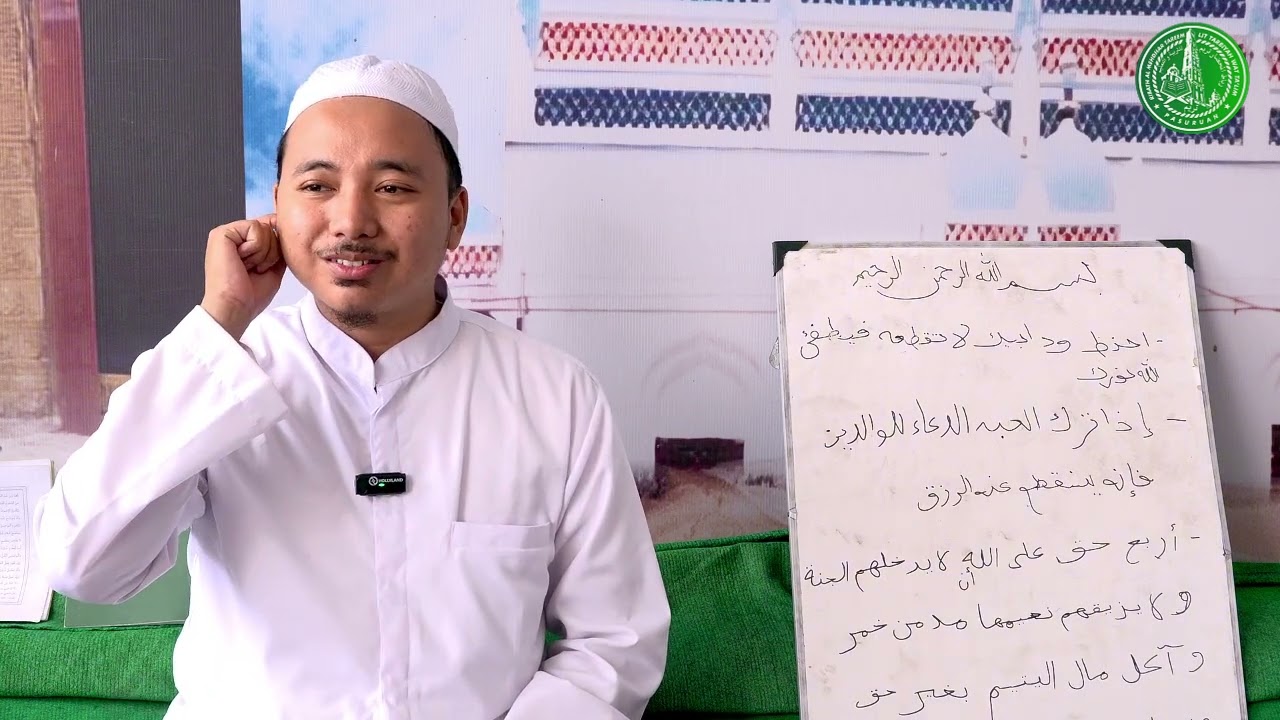 بسم الله الرحمن الرحيم
- احفظ ود ابيك لا تقطعه فيطفئ
الله نورك
- إذا ترك العبد الدعاء للوالدين
فإنه ينقطع عنه الرزق
- أربع حق على الله أن لا يدخلهم الجنة
ولا يذيقهم نعيمها مدمن خمر
و آكل مال اليتيم بغير حق
PASURUAN
HOLLYLAND